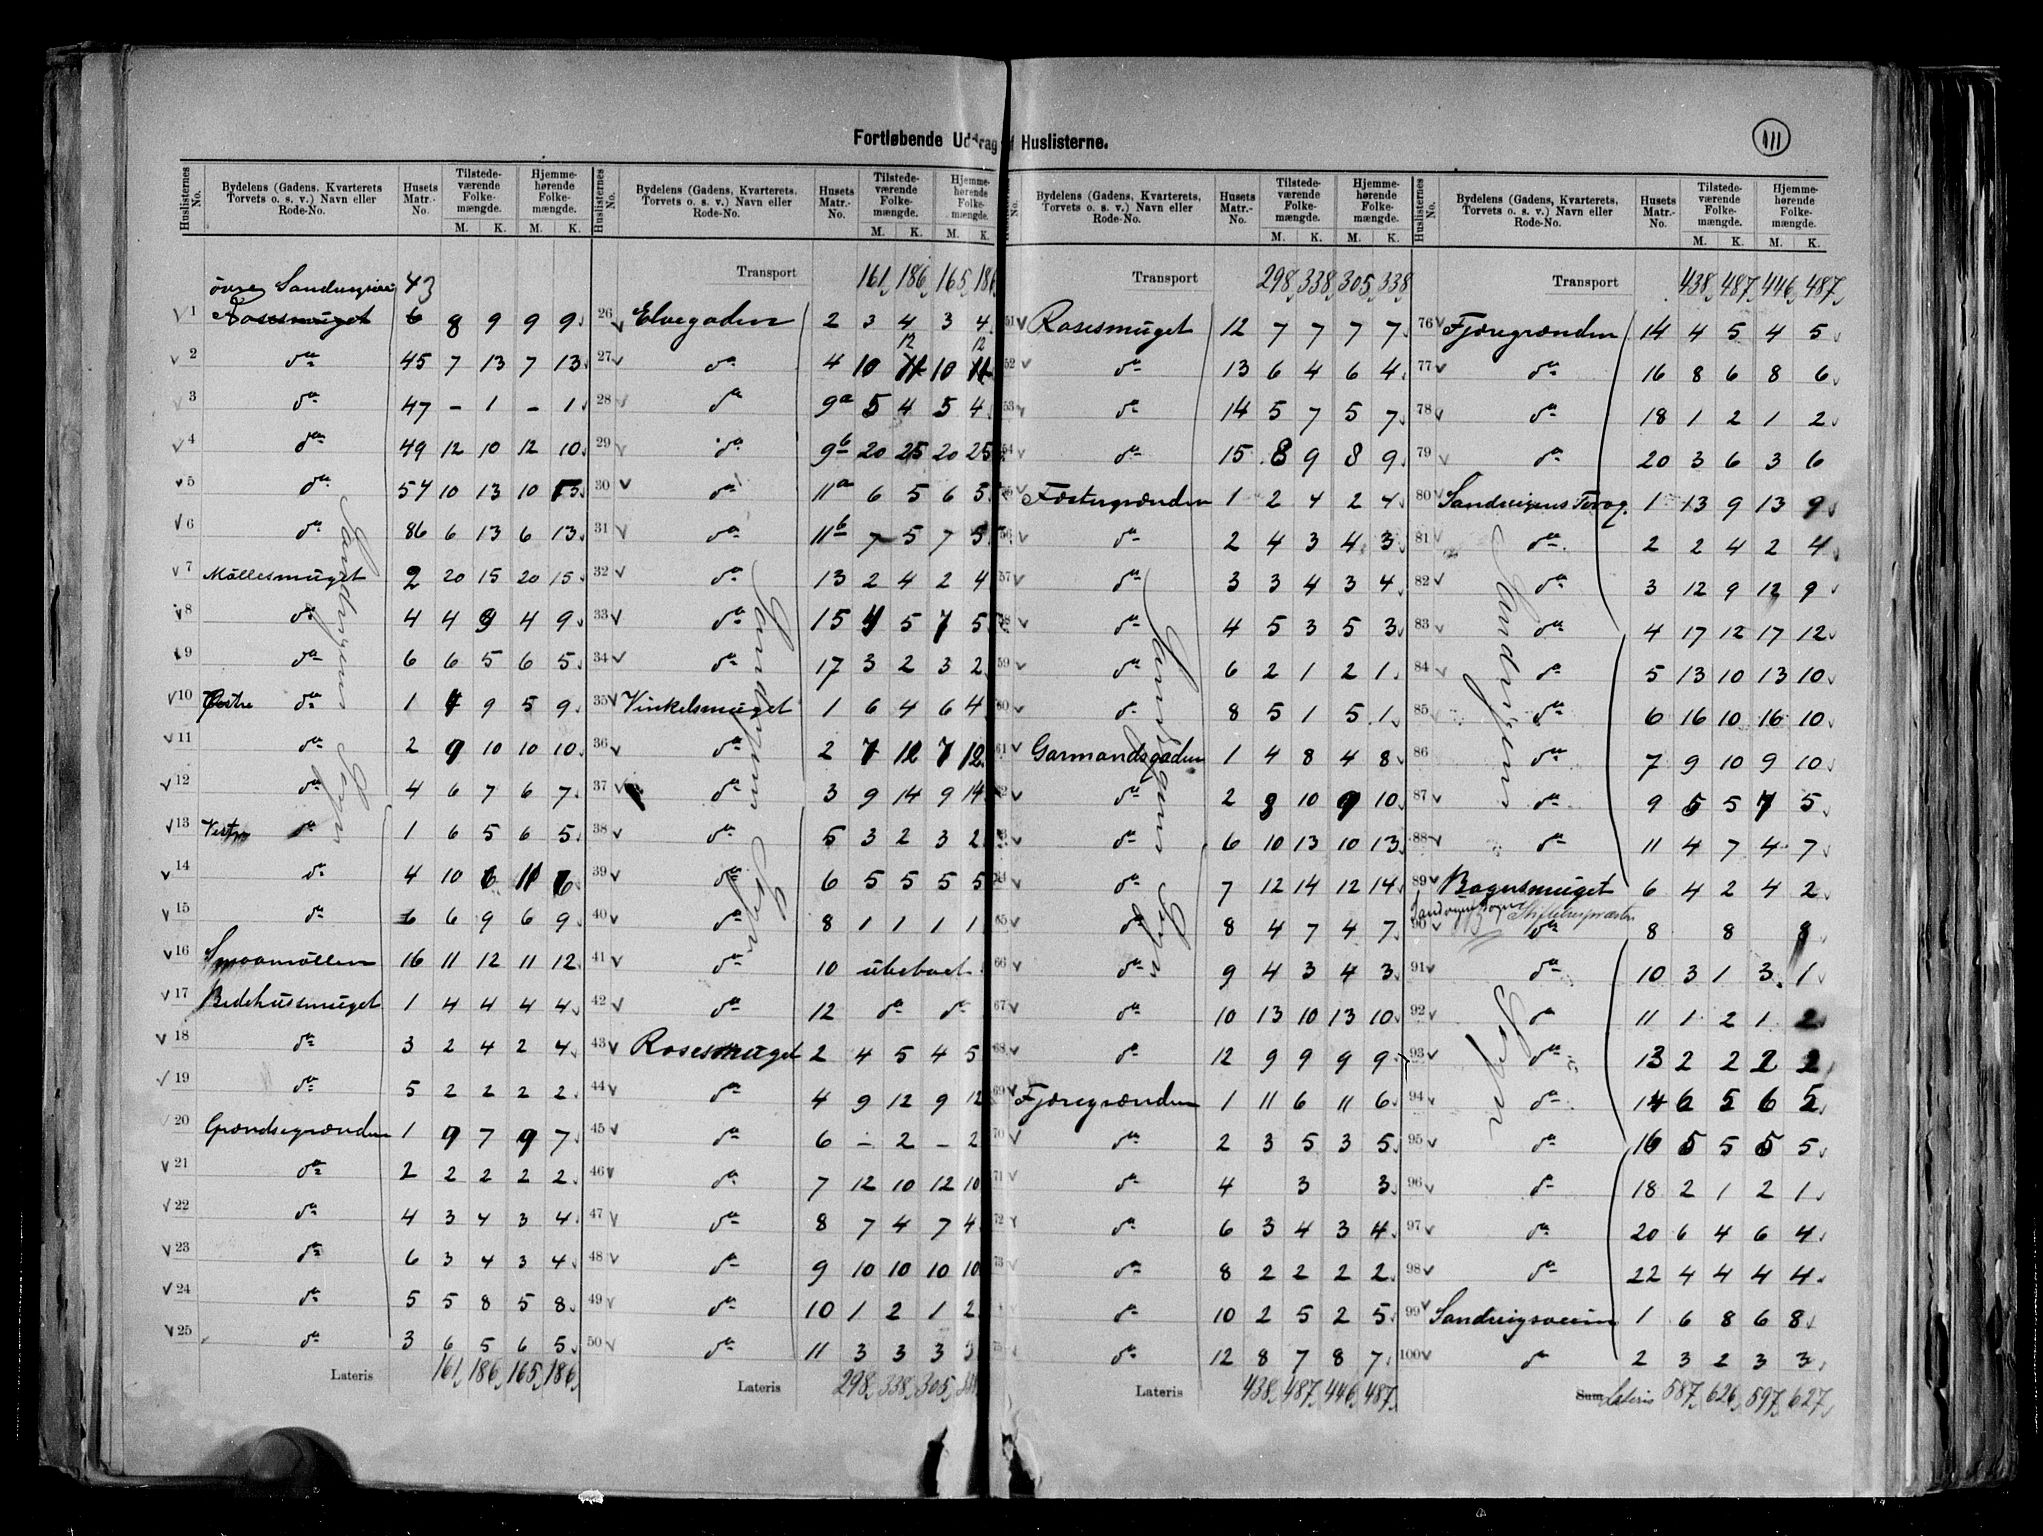 Fortløbende Uddrag af Huslisterne.
111
Huslisternes No. Bydelens (Gadens, Kvarterets Torvets o. s. v.) Navn eller Rode-No. Husets Matr.-No. Tilstedeværende Folkemængde. M. K. Hjemmehørende Folkemængde. M. K.
øvre Sandvigsvei 43
1 Rosesmuget 6 8 9 9 9
2 do 45 7 13 7 13
3 do 47 - 1 - 1
4 do 49 12 10 12 10
5 do 57 10 13 10 13
6 do 86 6 13 6 13
7 Møllesmuget 2 20 15 20 15
8 do 4 4 9 4 9
9 do 6 6 5 6 5
10 Østre do 1 4 9 5 9
11 do 2 9 10 10 10
12 do 4 6 7 6 7
13 Vestre do 1 6 5 6 5
14 do 4 10 6 11 6
15 do 6 6 9 6 9
16 Smaamøllen 16 11 12 11 12
17 Bedehussmuget 1 4 4 4 4
18 do 3 2 4 2 4
19 do 5 2 2 2 2
20 Grændsegrænden 1 9 7 9 7
21 do 2 2 2 2 2
22 do 4 3 4 3 4
23 do 6 3 4 3 4
24 do 5 5 8 5 8
25 do 3 6 5 6 5
Lateris 161 186 165 186
Sandvigens Sogn
Huslisternes No. Bydelens (Gadens, Kvarterets, Torvets o. s. v.) Navn eller Rode-No. Husets Matr.-No. Tilstedeværende Folkemængde. M. K. Hjemmehørende Folkemængde. M. K.
Transport 161 186 165 186
26 Elvegaden 2 3 4 3 4
12 12
27 do 4 10 11 10 11
28 do 9a 5 4 5 4
29 do 9b 20 25 20 25
30 do 11a 6 5 6 5
31 do 11b 7 5 7 5
32 do 13 2 4 2 4
33 do 15 7 5 7 5
34 do 17 3 2 3 2
35 Vinkelsmuget 1 6 4 6 4
36 do 2 7 12 7 12
37 do 3 9 14 9 14
38 do 5 3 2 3 2
39 do 6 5 5 5 5
40 do 8 1 1 1 1
41 do 10 ubeboet
42 do 12 do do
43 Rosesmuget 2 4 5 4 5
44 do 4 9 12 9 12
45 do 6 - 2 - 2
46 do 7 12 10 12 10
47 do 8 7 4 7 4
48 do 9 10 10 10 10
49 do 10 1 2 1 2
50 do 11 3 3 3 3
Lateris 298 338 305 338
Sandvigens Sogn
Huslisternes No. Bydelens (Gadens, Kvarterets, Torvets o. s. v.) Navn eller Rode-No. Husets Matr.-No. Tilstedeværende Folkemængde. M. K. Hjemmehørende Folkemængde. M. K.
Transport 298 338 305 338
51 Rosesmuget 12 7 7 7 7
52 do 13 6 4 6 4
53 do 14 5 7 5 7
54 do 15 8 9 8 9
55 Fæstegrænden 1 2 4 2 4
56 do 2 4 3 4 3
57 do 3 3 4 3 4
58 do 4 5 3 5 3
59 do 6 2 1 2 1
60 do 8 5 1 5 1
61 Garmandsgaden 1 4 8 4 8
62 do 2 8 10 9 10
63 do 6 10 13 10 13
64 do 7 12 14 12 14
65 do 8 4 7 4 7
66 do 9 4 3 4 3
67 do 10 13 10 13 10
68 do 12 9 9 9 9
69 Fjæregrænden 1 11 6 11 6
70 do 2 3 5 3 5
71 do 4 3 3
72 do 6 3 4 3 4
73 do 8 2 2 2 2
do 10 2 5 2 5
75 do 12 8 7 8 7
Lateris 438 487 446 487
Sandvigens Sogn
Huslisternes No. Bydelens (Gadens, Kvarterets, Torvets o. s. v.) Navn eller Rode-No. Husets Matr.-No. Tilstedeværende Folkemængde. M. K. Hjemmehørende Folkemængde. M. K.
Transport 438 487 446 487
76 Fjæregrænden 14 4 5 4 5
77 do 16 8 6 8 6
78 do 18 1 2 1 2
79 do 20 3 6 3 6
80 Sandvigens Torvg. 1 13 9 13 9
81 do 2 2 4 2 4
82 do 3 12 9 12 9
83 do 4 17 12 17 12
84 do 5 13 10 13 10
85 do 6 16 10 16 10
86 do 7 9 10 9 10
87 do 9 5 5 7 5
88 do 11 4 7 4 7
89 Bagersmuget 6 4 2 4 2
Sandvigens Sogn Stiftelsespræsten
90 do 8 8 8
91 do 10 3 1 3 1
92 do 11 1 2 1 2
93 do 13 2 2 2 2
94 do 14 6 5 6 5
95 do 16 5 5 5 5
96 do 18 2 1 2 1
97 do 20 6 4 6 4
98 do 22 4 4 4 4
99 Sandvigsveien 1 6 8 6 8
100 do 2 3 2 3 3
Sum Lateris 587 626 597 627
Sandvigens Sogn